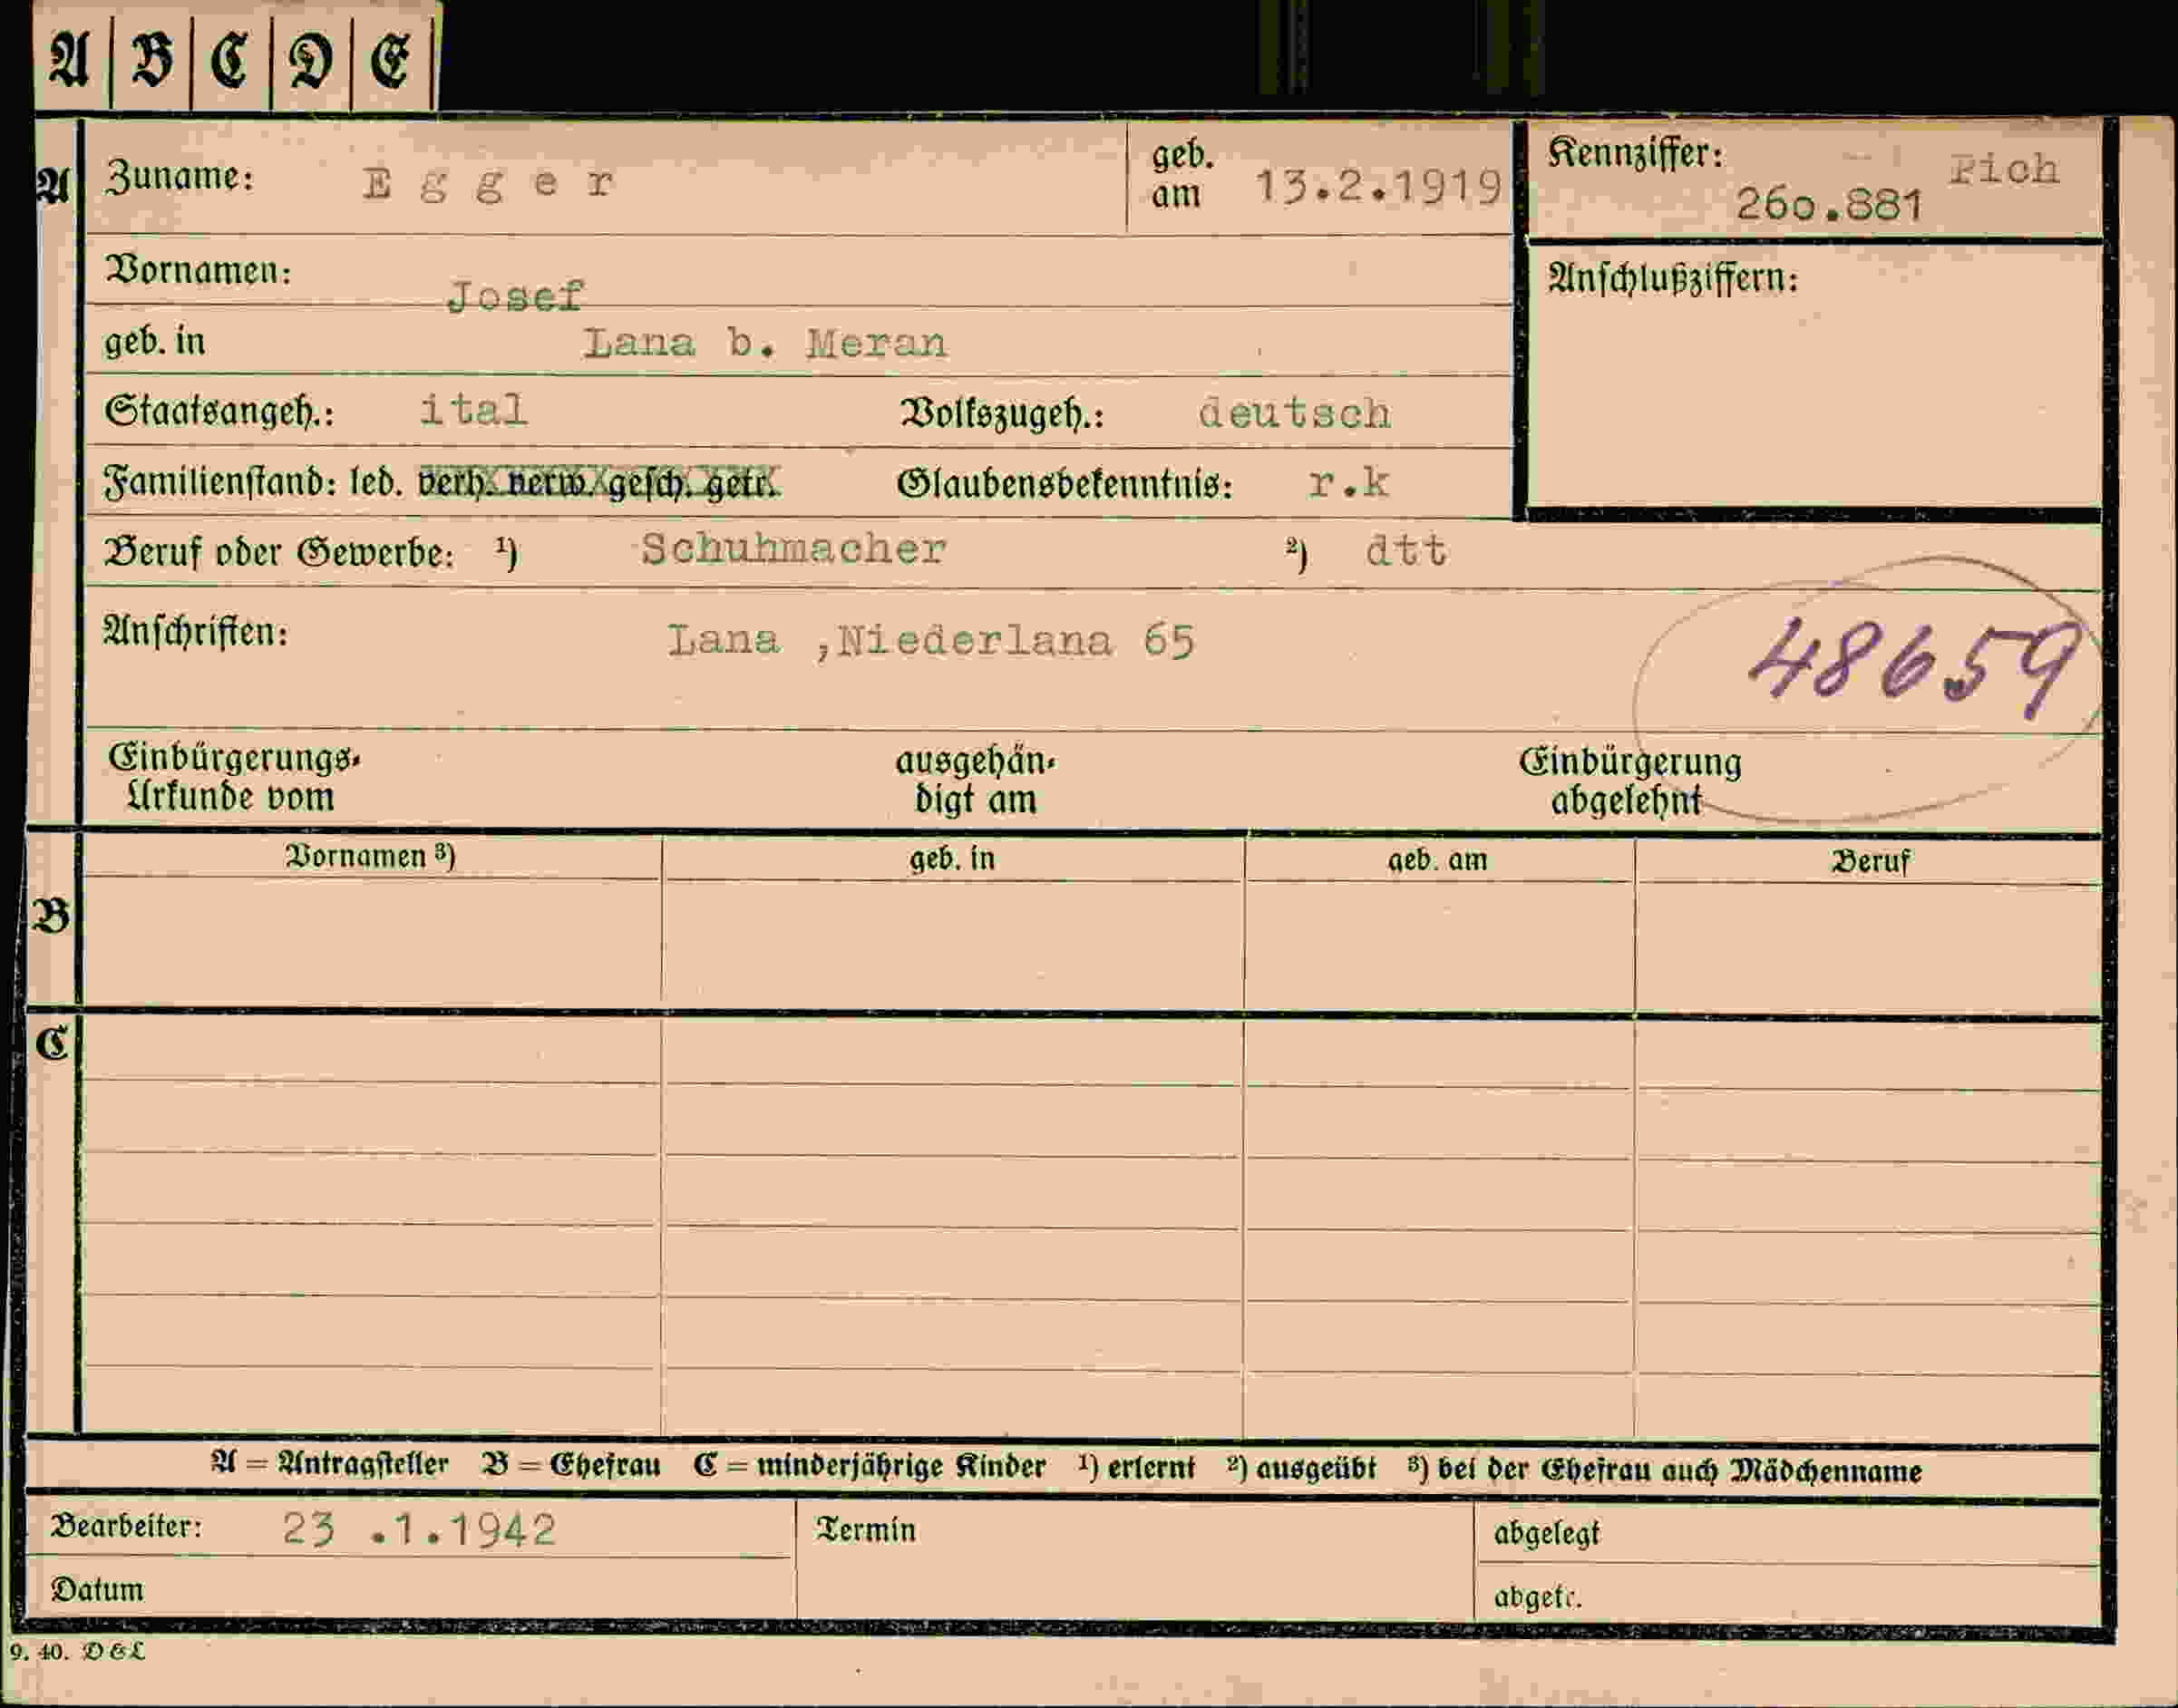 A B C D E
A Zuname: Egger geb. am 13.2.1919 Kennziffer: Pich 260.881
Vornamen: Josef Anschlußziffern:
geb. in Lana b. Meran
Staatsangeh.: ital Volkszugeh.: deutsch
Familienstand: led. verh. verw. gesch. getr. Glaubensbekenntnis: r.k
Beruf oder Gewerbe: ¹) Schuhmacher ²) dtt
Anschriften: Lana ,Niederlana 65 48659
Einbürgerungs- ausgehän- Einbürgerung
Urkunde vom digt am abgelehnt
Vornamen ³) geb. in geb. am Beruf
B
C
A = Antragsteller B = Ehefrau C = minderjährige Kinder ¹) erlernt ²) ausgeübt ³) bei der Ehefrau auch Mädchenname
Bearbeiter: 23 .1.1942 Termin abgelegt
Datum abgetr.
9. 40. DEL